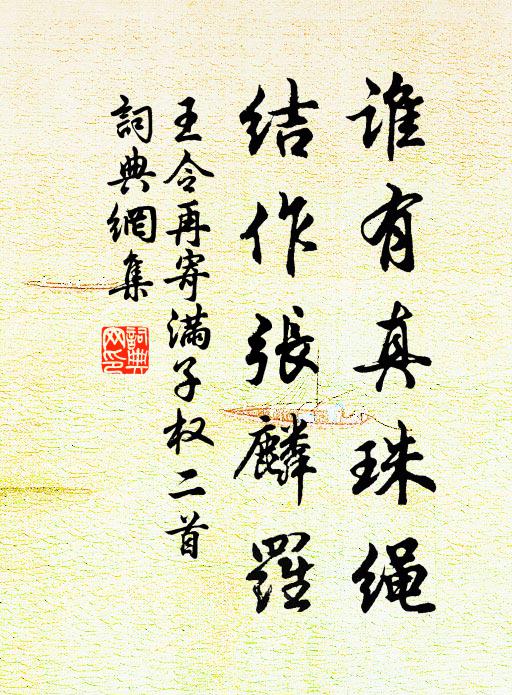 谁有真珠绳
结作張麟羅
王令再寄满子权二首
詞典網集
詞典網印